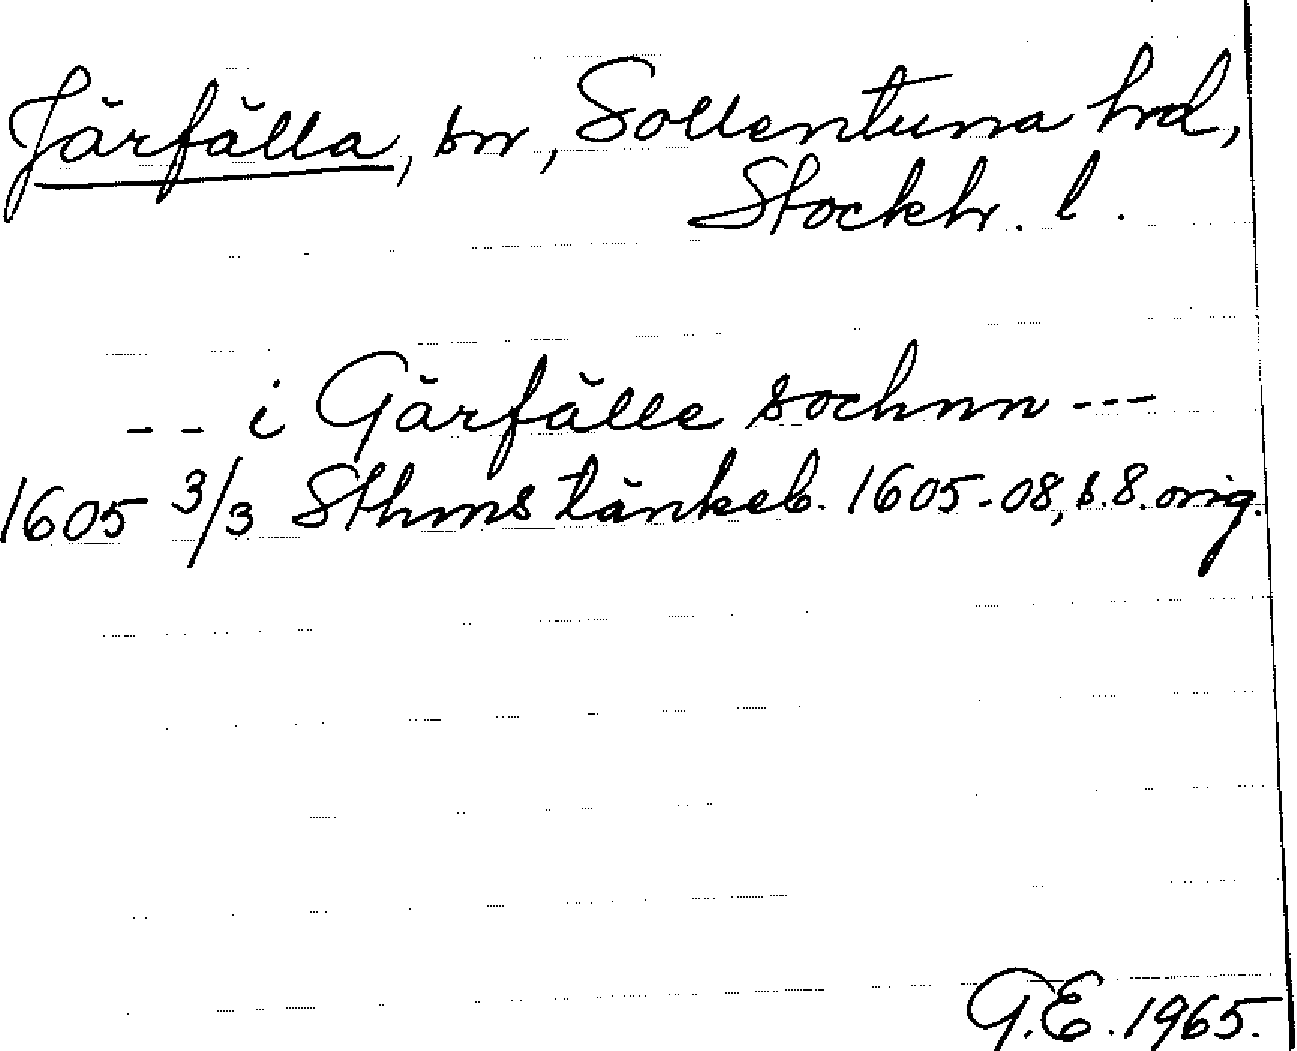 Järfälla, sn, Sollentuna hrd,
Stockh. l.
-- i Gärfälle sochnn ---
1605 3/3 Sthms tänkeb. 1605-08, s. 8. orig.
G.E. 1965.